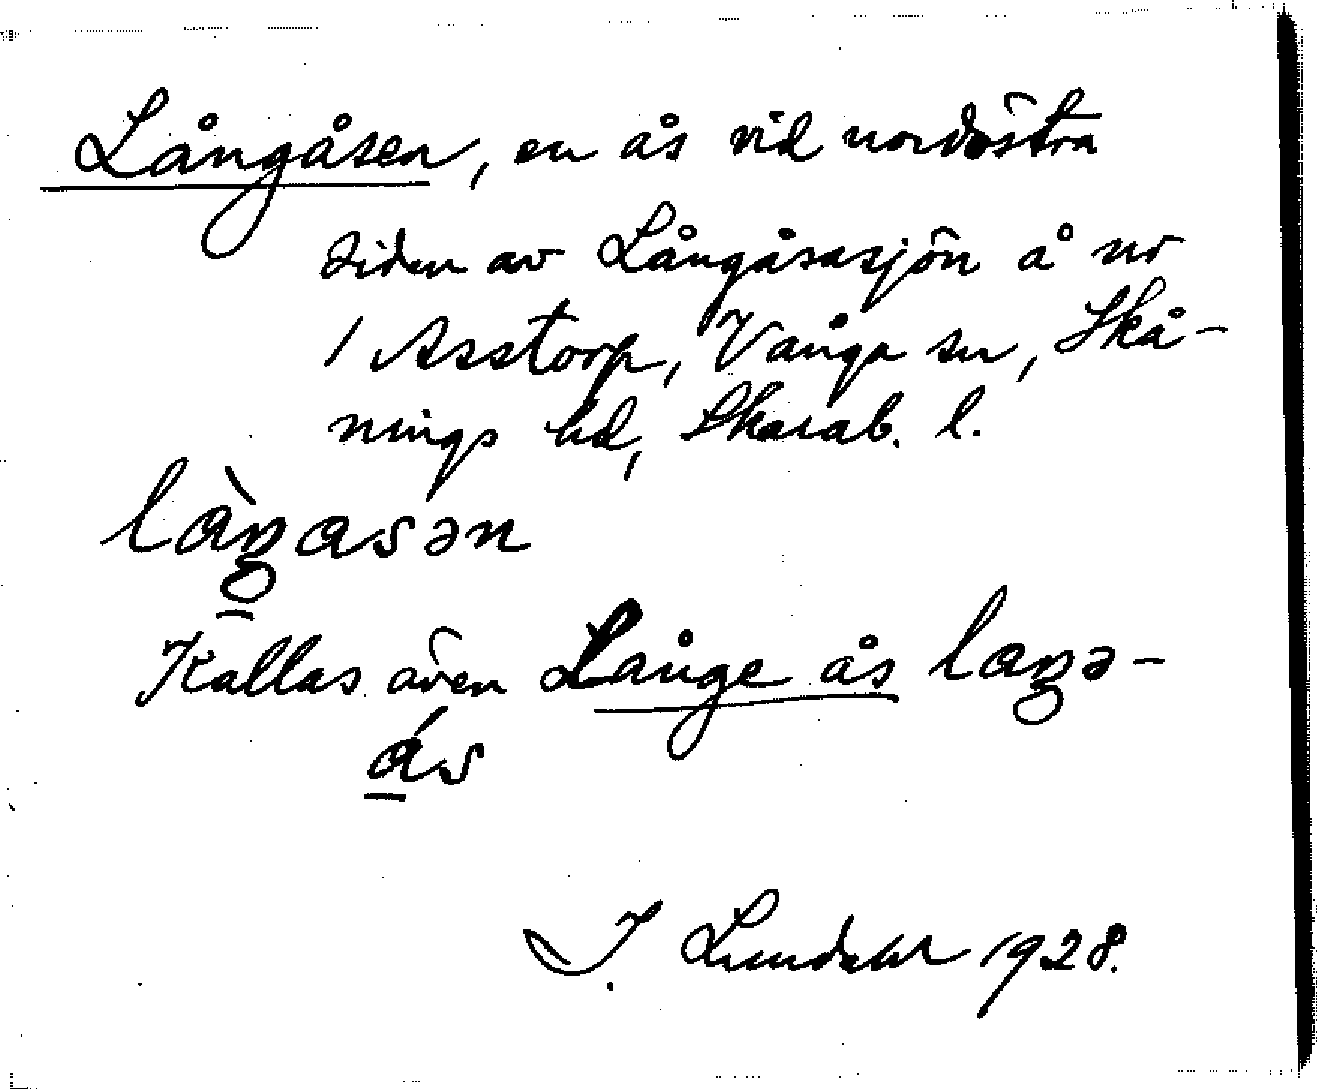 Långåsen, en ås vid nordöstra
sidan av Långåsasjön å nr
1 Asstorp, Vånga sn, Skå-
nings hd, Skarab. l.
làŋasən
Kallas även Långe ås laŋə-
ás
I. Lundahl 1928.